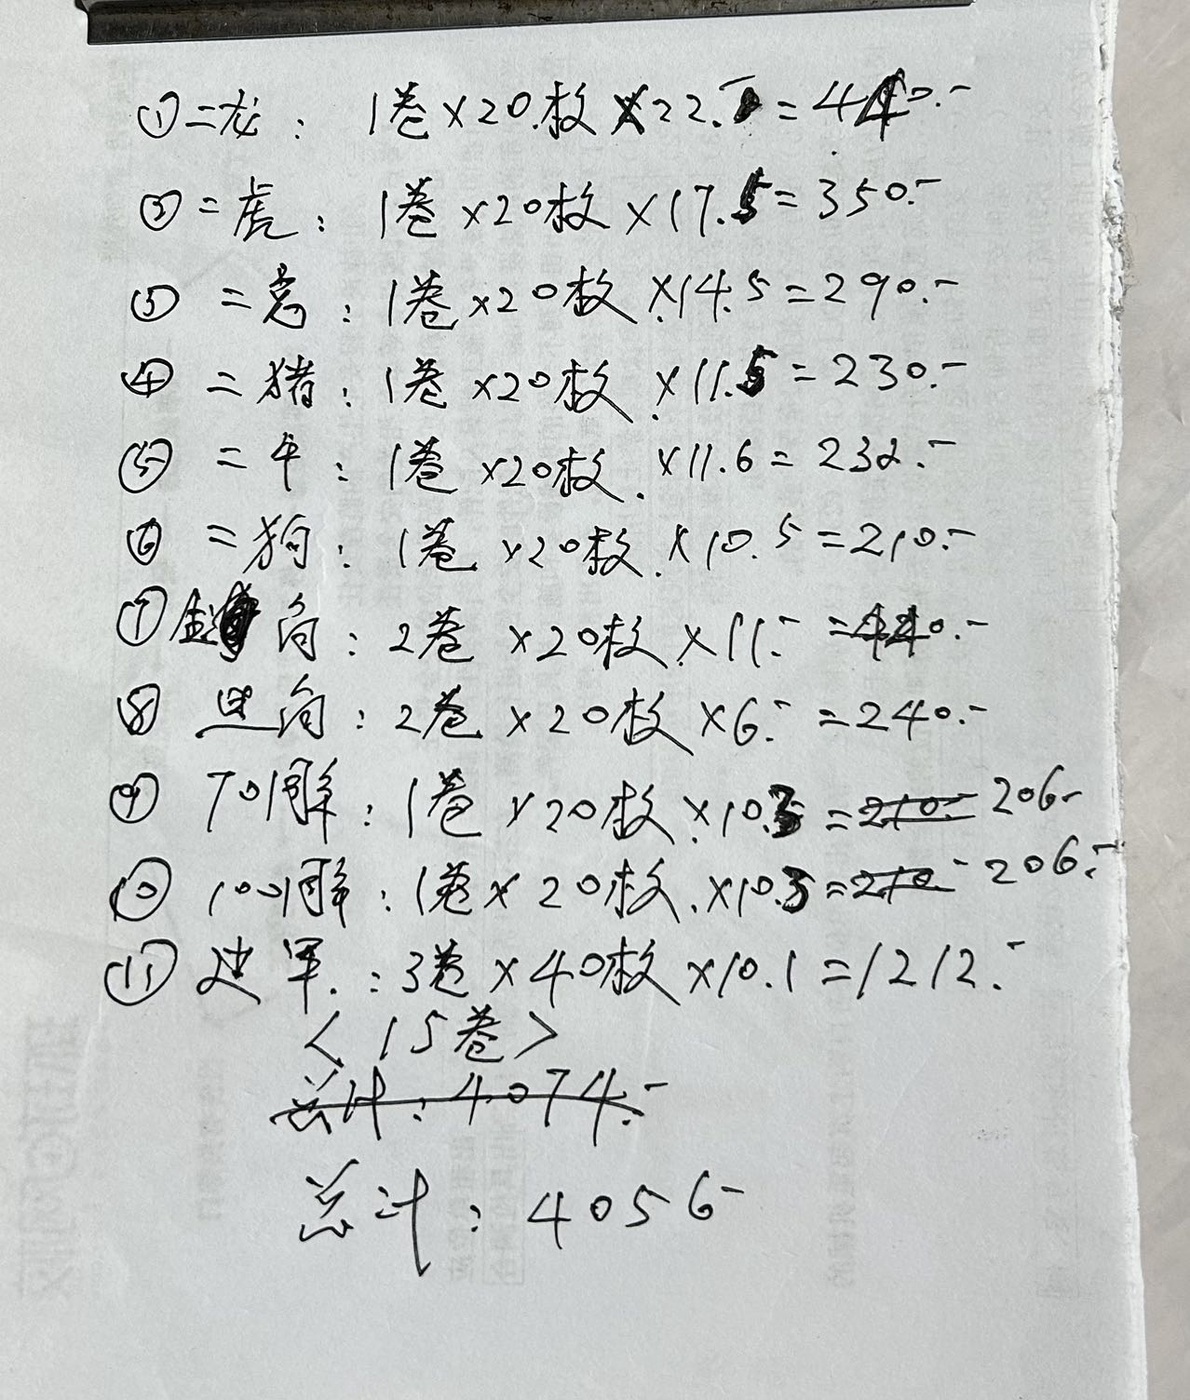 ①二龙：1卷×20枚×22.-=440.-
②二虎：1卷×20枚×17.5=350.-
③二兔：1卷×20枚×14.5=290.-
④二猪：1卷×20枚×11.5=230.-
⑤二牛：1卷×20枚×11.6=232.-
⑥二狗：1卷×20枚×10.5=210.-
⑦向：2卷×20枚×11.-=440.-
⑧向：2卷×20枚×6.-=240.-
⑨70周年：1卷×20枚×10.3=210.- 206-
⑩100周年：1卷×20枚×10.3=210- 206.-
⑪建军.：3卷×40枚×10.1=1212.-
<15卷>
总计：4074.-
总计：4056-